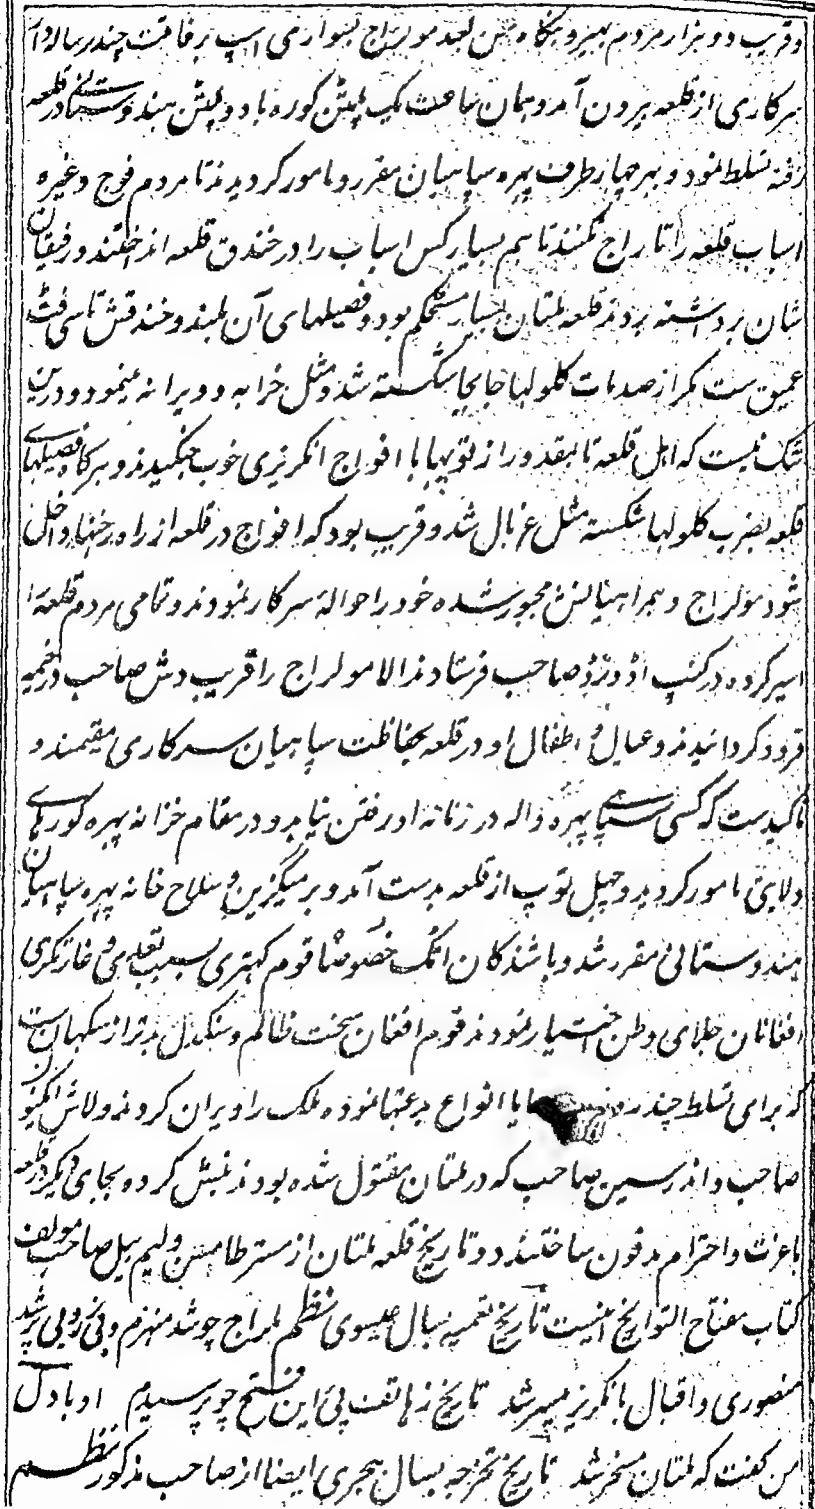 وقریب دو هزار مردم بهیر و بنگاه من بعد مولراج بسواری اسپ برفاقت چند رساله دار
سرکاری از قلعه بیرون آمد و همان ساعت یک پلٹن گوره با دو پلٹن هندوستانی در قلعه
رفته تسلط نمود و بهر چهار طرف پهره سپاهیان مقرر و مامور کردیدند تا مردم فوج وغیره
اسباب قلعه را تاراج نکنند تا هم بسیار کس اسباب را در خندق قلعه انداختند و رفیقان
شان برداشته بردند قلعه ملتان بسیار مستحکم بود و فصیلهای آن بلند و خندقش تا سی فٹ
عمیق ست مگر از صدمات گلولها جابجا شکسته شد و مثل خرابه و ویرانه مینمود و درین
شک نیست که اهل قلعه تا بمقدور از توپها با افواج انگریزی خوب جنگیدند و هرگاه فصیلهای
قلعه بضرب گلولها شکسته مثل غربال شد و قریب بود که افواج در قلعه از راه رخنها داخل
شود مولراج و همراهیانش مجبور شده خود را حوالۀ سرکار نمودند و تمامی مردم قلعه را
اسیر کرده در کنپ اڈورڈ صاحب فرستادند الا مولراج را قریب دش صاحب در خیمه
فرود گردانیدند و عیال و اطفال او در قلعه بحفاظت سپاهیان سرکاری مقیمند و
تاکیدست که کسی سپاهی پهره واله در زنانه او رفتن نیابد و در مقام خزانه پهره گورهای
ولایتی مامور کردید و چهل توپ از قلعه بدست آمد و بر میگزین و سلاح خانه پهره سپاهیان
هندوستانی مقرر شد و باشندگان اٹک خصوصًا قوم کهتری بسبب تعدی و غارتگری
افغانان جلای وطن اختیار نمودند قوم افغان سخت ظالم و سنگدل بدتر از سکهان ست
که برای تسلط چند روز انواع بدعتها نموده ملک را ویران کردند و لاش اگنیو
صاحب و اندرسین صاحب که در ملتان مقتول شده بودند نبش کرده بجای دیگر در قلعه
باعزت و احترام مدفون ساختند و تاریخ قلعه ملتان از مستر طامسن ولیم بیل صاحب مولف
کتاب مفتاح التواریخ اینست تاریخ تعمیه بسال عیسوی نظم مولراج چو شد منهزم و بی زر و بی پر شد
منصوری و اقبال بانگریز میسر شد تاریخ ز هاتف پئ این فتح چو پرسیدم او با دل
من گفت که ملتان مسخر شد تاریخ تخرجه بسال هجری ایضا از صاحب مذکور نظم